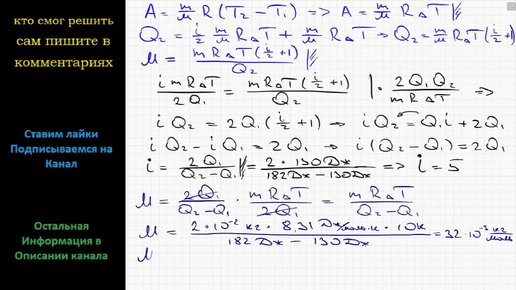 кто смог решить
сам пишите в
комментариях
Ставим лайки
Подписываемся на
Канал
Остальная
Информация в
Описании канала
A = m/μ R (T₂ − T₁) => A = m/μ R ΔT
Q₂ = i/2 m/μ R ΔT + m/μ R ΔT → Q₂ = m/μ R ΔT (i/2 + 1)
μ = m R ΔT (i/2 + 1) / Q₂
i m R ΔT / 2 Q₁ = m R ΔT (i/2 + 1) / Q₂ | · 2 Q₁ Q₂ / m R ΔT =>
i Q₂ = 2 Q₁ (i/2 + 1) → i Q₂ = Q₁ i + 2 Q₁
i Q₂ − i Q₁ = 2 Q₁ → i (Q₂ − Q₁) = 2 Q₁
i = 2 Q₁ / Q₂ − Q₁ = 2 · 130 Дж / 182 Дж − 130 Дж => i = 5
μ = 2 Q₁ / Q₂ − Q₁ · m R ΔT / 2 Q₁ = m R ΔT / Q₂ − Q₁
μ = 2 · 10⁻² кг · 8,31 Дж/моль·К · 10К / 182 Дж − 130 Дж = 32 · 10⁻³ кг/моль